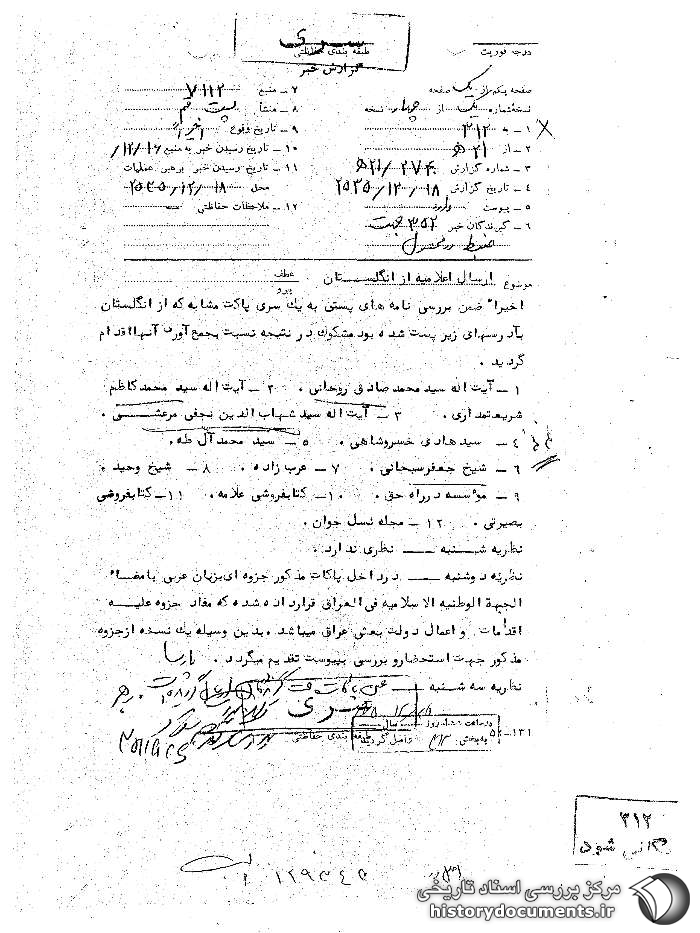 سری
طبقه بندی حفاظتی
درجه فوریت
گزارش خبر
صفحه یکم از یک صفحه
نسخه شماره یک از چهار نسخه
۱ - به ۳۱۲
۲ - از ۲۱ ه
۳ - شماره گزارش ۲۷۴۰/ ۲۱ه
۴ - تاریخ گزارش ۲۵۳۵/۱۲/۱۸
۵ - پیوست دارد
۶ - گیرندگان خبر ۳۵۲ جهت
ضبط در محل
۷ - منبع ۷۱۱۲
۸ - منشأ پست قم
۹ - تاریخ وقوع اخیراً
۱۰ - تاریخ رسیدن خبر به منبع ۱۲/۱۶/
۱۱ - تاریخ رسیدن خبر برهبر عملیات
محل ۲۵۳۵/۱۲/۱۸
۱۲ - ملاحظات حفاظتی
موضوع ارسال اعلامیه از انگلستان عطف
پیرو
اخیراً ضمن بررسی نامه های پستی به یک سری پاکت مشابه که از انگلستان
بآدرسهای زیر پست شده بود مشکوک در نتیجه نسبت بجمع آوری آنها اقدام
گردید .
۱ - آیت اله سید محمد صادق روحانی . ۲ - آیت اله سید محمد کاظم
شریعتمداری . ۳ - آیت اله سید شهاب الدین نجفی مرعشی .
۴ - سید هادی خسروشاهی . ۵ - سید محمد آل طه .
۶ - شیخ جعفر سبحانی . ۷ - عرب زاده . ۸ - شیخ وحید .
۹ - مؤسسه در راه حق . ۱۰ - کتابفروشی علامه . ۱۱ - کتابفروشی
بصیرتی . ۱۲ - مجله نسل جوان .
نظریه شنبه — نظری ندارد .
نظریه دوشنبه — در داخل پاکات مذکور جزوه ای بزبان عربی بامضاء
الجبهة الوطنیه الاسلامیه فی العراق قرار داده شده که مفاد جزوه علیه
اقدامات و اعمال دولت بعثی عراق میباشد . بدین وسیله یک نسخه از جزوه
مذکور جهت استحضار و بررسی بپیوست تقدیم میگردد . پارسا
نظریه سه شنبه —
سری
طبقه بندی حفاظتی
۵ - ۱۳۱
۳۱۲
شود
۱۲۹۳۴۵
مرکز بررسی اسناد تاریخی
historydocuments.ir